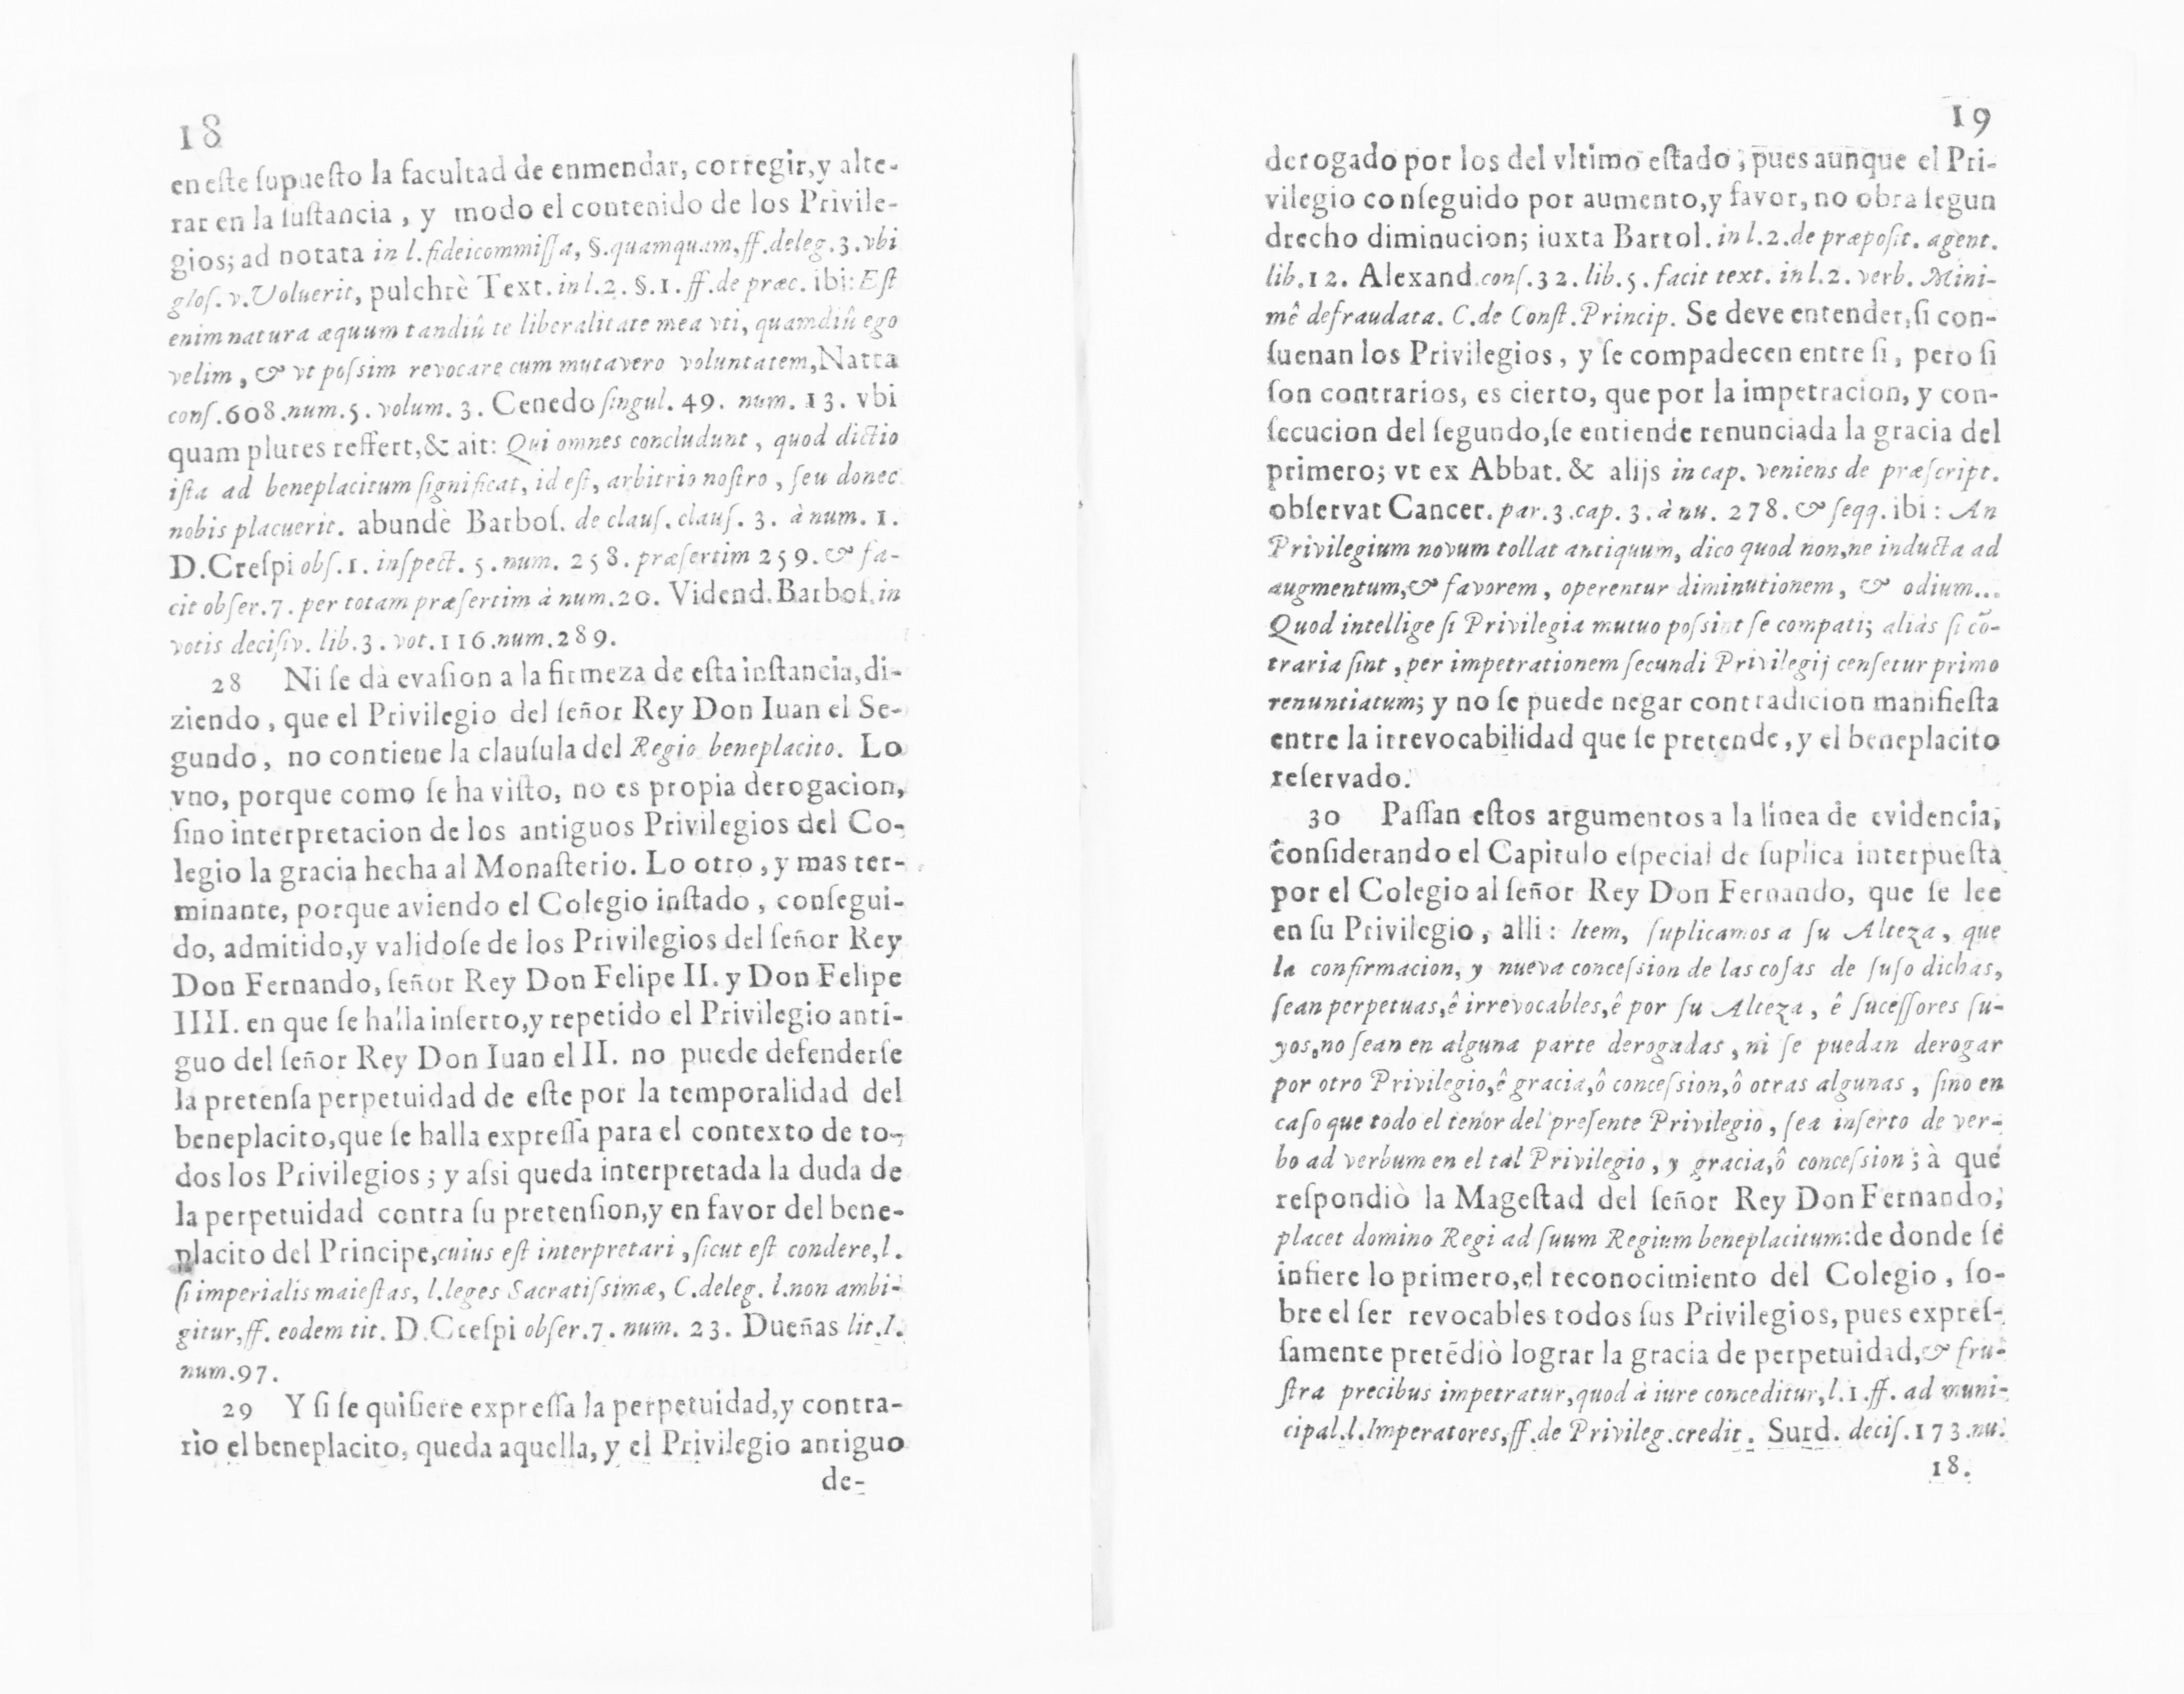 18
en este ſupueſto la facultad de enmendar, corregir, y alte-
rar en la ſuſtancia, y modo el contenido de los Privile-
gios; ad notata in l. fideicommiſſa, §. quamquam, ff. deleg. 3. vbi
gloſ. v. Voluerit, pulchrè Text. in l. 2. §. 1. ff. de præc. ibi: Eſt
enim natura æquum tandiû te liberalitate mea vti, quamdiû ego
velim, & vt poſsim revocare cum mutavero voluntatem, Natta
conſ. 608. num. 5. volum. 3. Cenedo ſingul. 49. num. 13. vbi
quam plures reffert, & ait: Qui omnes concludunt, quod dictio
iſta ad beneplacitum ſignificat, id eſt, arbitrio noſtro, ſeu donec
nobis placuerit. abundè Barboſ. de clauſ. clauſ. 3. à num. 1.
D. Creſpi obſ. 1. inſpect. 5. num. 258. præſertim 259. & fa-
cit obſer. 7. per totam præſertim à num. 20. Vidend. Barboſ. in
votis deciſiv. lib. 3. vot. 116. num. 289.
28 Ni ſe dà evaſion a la firmeza de eſta inſtancia, di-
ziendo, que el Privilegio del ſeñor Rey Don Iuan el Se-
gundo, no contiene la clauſula del Regio beneplacito. Lo
vno, porque como ſe ha viſto, no es propia derogacion,
ſino interpretacion de los antiguos Privilegios del Co-
legio la gracia hecha al Monaſterio. Lo otro, y mas ter-
minante, porque aviendo el Colegio inſtado, conſegui-
do, admitido, y validoſe de los Privilegios del ſeñor Rey
Don Fernando, ſeñor Rey Don Felipe II. y Don Felipe
IIII. en que ſe halla inſerto, y repetido el Privilegio anti-
guo del ſeñor Rey Don Iuan el II. no puede defenderſe
la pretenſa perpetuidad de eſte por la temporalidad del
beneplacito, que ſe halla expreſſa para el contexto de to-
dos los Privilegios; y aſsi queda interpretada la duda de
la perpetuidad contra ſu pretenſion, y en favor del bene-
placito del Principe, cuius eſt interpretari, ſicut eſt condere, l.
ſi imperialis maieſtas, l. leges Sacratiſsimæ, C. deleg. l. non ambi-
gitur, ff. eodem tit. D. Creſpi obſer. 7. num. 23. Dueñas lit. I.
num. 97.
29 Y ſi ſe quiſiere expreſſa la perpetuidad, y contra-
rio el beneplacito, queda aquella, y el Privilegio antiguo
de-
19
derogado por los del vltimo eſtado, pues aunque el Pri-
vilegio conſeguido por aumento, y favor, no obra ſegun
drecho diminucion; iuxta Bartol. in l. 2. de præpoſit. agent.
lib. 12. Alexand. conſ. 32. lib. 5. facit text. in l. 2. verb. Mini-
mê defraudata. C. de Conſt. Princip. Se deve entender, ſi con-
ſuenan los Privilegios, y ſe compadecen entre ſi, pero ſi
ſon contrarios, es cierto, que por la impetracion, y con-
ſecucion del ſegundo, ſe entiende renunciada la gracia del
primero; vt ex Abbat. & alijs in cap. veniens de præſcript.
obſervat Cancer. par. 3. cap. 3. à nu. 278. & ſeqq. ibi: An
Privilegium novum tollat antiquum, dico quod non, ne inducta ad
augmentum, & favorem, operentur diminutionem, & odium...
Quod intellige ſi Privilegia mutuo poſsint ſe compati; aliàs ſi cõ-
traria ſint, per impetrationem ſecundi Privilegij cenſetur primo
renuntiatum; y no ſe puede negar contradicion manifieſta
entre la irrevocabilidad que ſe pretende, y el beneplacito
reſervado.
30 Paſſan eſtos argumentos a la línea de evidencia,
conſiderando el Capitulo eſpecial de ſuplica interpueſta
por el Colegio al ſeñor Rey Don Fernando, que ſe lee
en ſu Privilegio, alli: Item, ſuplicamos a ſu Alteza, que
la confirmacion, y nueva conceſsion de las coſas de ſuſo dichas,
ſean perpetuas, ê irrevocables, ê por ſu Alteza, ê ſuceſſores ſu-
yos, no ſean en alguna parte derogadas, ni ſe puedan derogar
por otro Privilegio, ê gracia, ô conceſsion, ô otras algunas, ſino en
caſo que todo el tenor del preſente Privilegio, ſea inſerto de ver-
bo ad verbum en el tal Privilegio, y gracia, ô conceſsion; à que
reſpondiò la Mageſtad del ſeñor Rey Don Fernando,
placet domino Regi ad ſuum Regium beneplacitum: de donde ſe
infiere lo primero, el reconocimiento del Colegio, ſo-
bre el ſer revocables todos ſus Privilegios, pues expreſ-
ſamente pretẽdiò lograr la gracia de perpetuidad, & fru-
ſtra precibus impetratur, quod à iure conceditur, l. 1. ff. ad muni-
cipal. l. Imperatores, ff. de Privileg. credit. Surd. deciſ. 173. nu.
18.